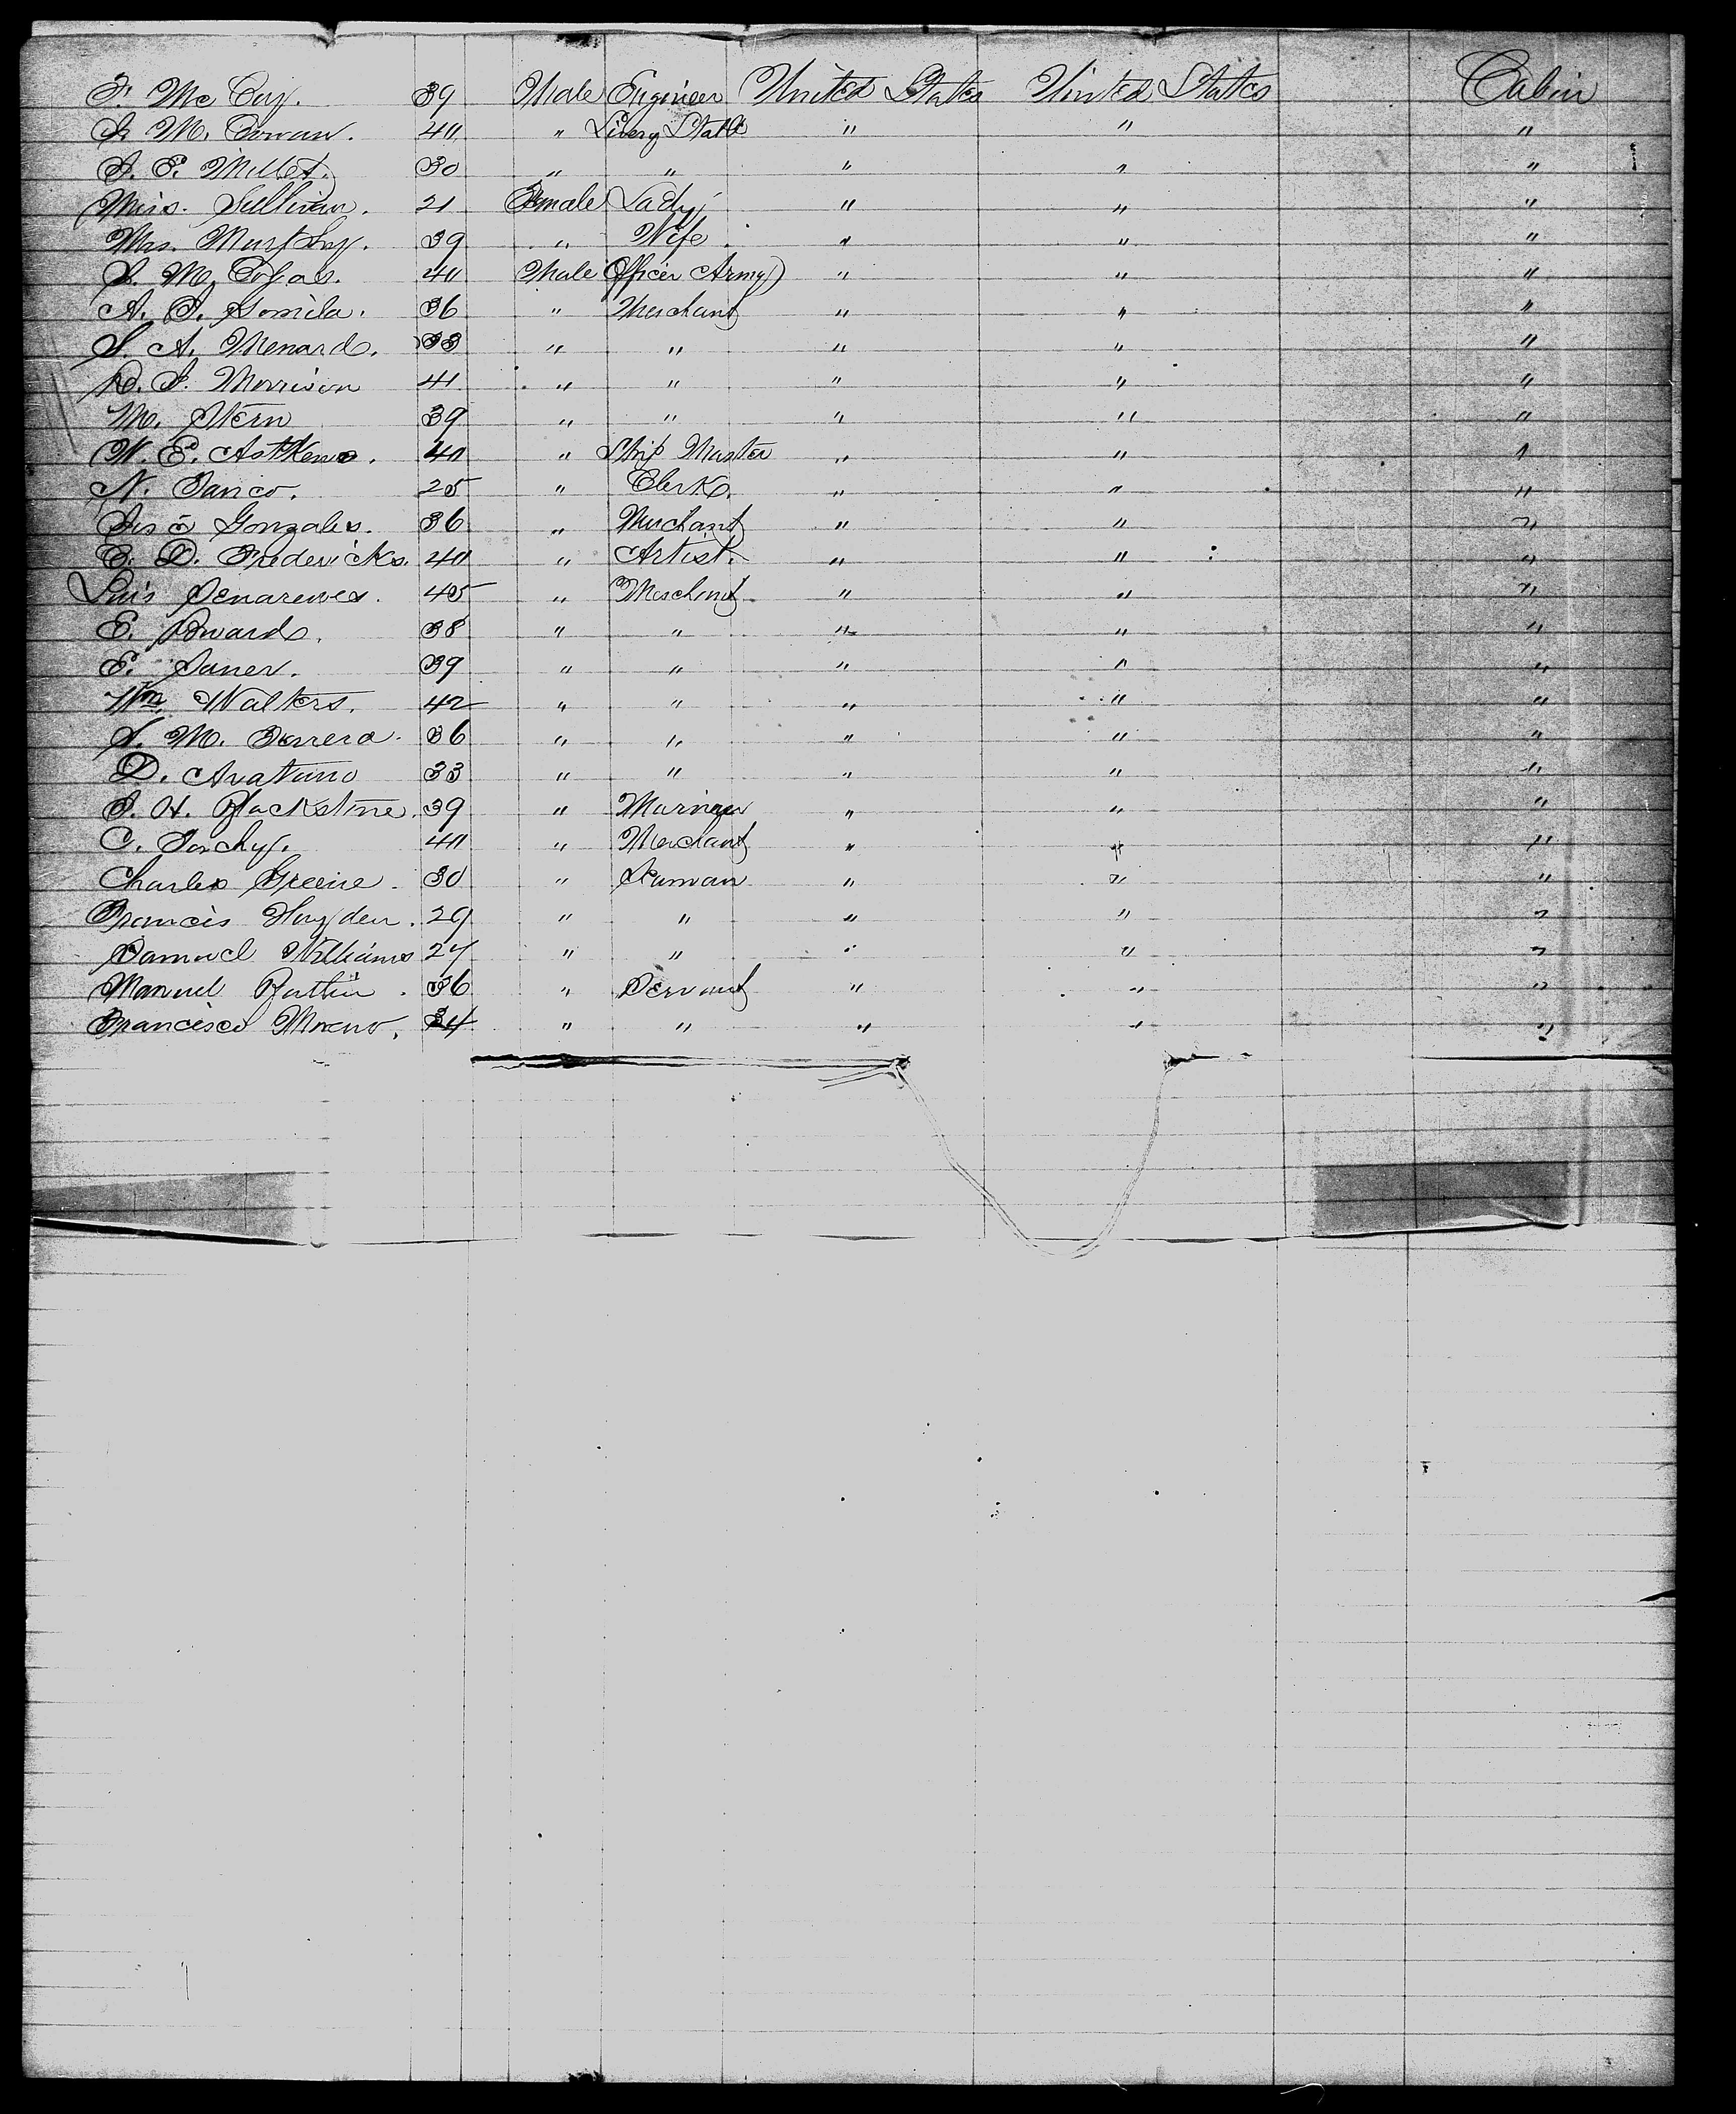 F. Mc Coy. 39 Male Engineer United States United States Cabin
S. M. Cowan. 40 " Livery Stable " " "
S. E. Millet. 30 " " " " "
Miss. Sullivan. 21 Female Lady " " "
Mrs. Murphy. 39 " Wife " " "
S. M. 40 Male Officer Army " " "
A. J. Gomila. 36 " Merchant " " "
S. A. Menard. 33 " " " " "
D. S. Morrison 41 " " " " "
M. Stern 39 " " " " "
W. E. 40 " Ship Master " " "
N. 25 " Clerk. " " "
José Gonzales. 36 " Merchant " " "
C. D. Fredericks. 40 " Artist. " " "
Luis 45 " Merchant " " "
E. 38 " " " " "
E. Janer. 39 " " " " "
Wm. Walters. 42 " " " " "
S. M. 36 " " " " "
D. 33 " " " " "
S. H. Blackstine. 39 " " " "
C. 40 " Merchant " " "
Charles Greene. 30 " Seaman " " "
Francis Hayden. 29 " " " " "
Samuel Williams 27 " " " " "
Manuel 36 " Servant " " "
Francisco Moreno. 34 " " " " "